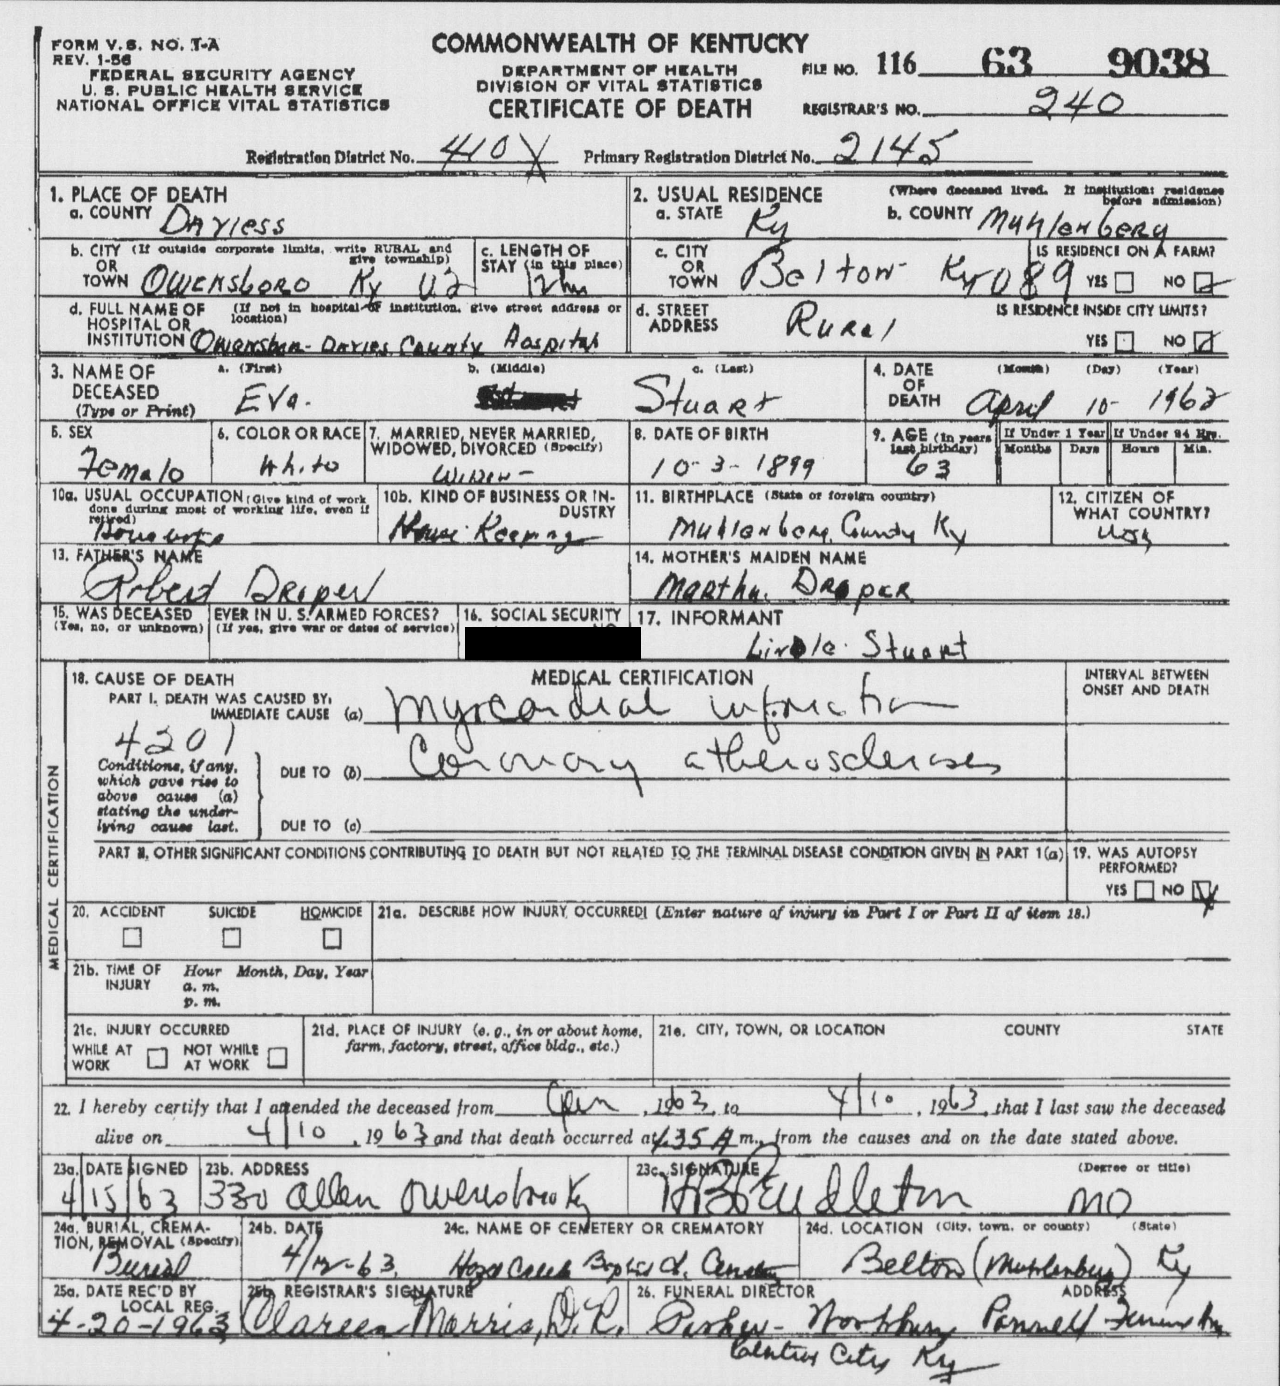 FORM V. S. NO. T-A
REV. 1-56
FEDERAL SECURITY AGENCY
U. S. PUBLIC HEALTH SERVICE
NATIONAL OFFICE VITAL STATISTICS
COMMONWEALTH OF KENTUCKY
DEPARTMENT OF HEALTH
DIVISION OF VITAL STATISTICS
CERTIFICATE OF DEATH
FILE NO. 116 63 9038
REGISTRAR'S NO. 240
Registration District No. 410X Primary Registration District No. 2145
1. PLACE OF DEATH
a. COUNTY Daviess
2. USUAL RESIDENCE (Where deceased lived. If institution: residence before admission)
a. STATE Ky b. COUNTY Muhlenberg
b. CITY (If outside corporate limits, write RURAL and give township)
OR
TOWN Owensboro Ky
c. LENGTH OF
STAY (in this place)
12 hrs
c. CITY
OR
TOWN Belton Ky 089
IS RESIDENCE ON A FARM?
YES NO
d. FULL NAME OF (If not in hospital or institution, give street address or location)
HOSPITAL OR
INSTITUTION Owensboro-Davies County Hospital
d. STREET
ADDRESS Rural
IS RESIDENCE INSIDE CITY LIMITS?
YES NO
3. NAME OF
DECEASED
(Type or Print)
a. (First) b. (Middle) c. (Last)
Eva. Stuart
4. DATE
OF
DEATH
(Month) (Day) (Year)
April 10- 1963
5. SEX
Female
6. COLOR OR RACE
White
7. MARRIED, NEVER MARRIED,
WIDOWED, DIVORCED (Specify)
Widow
8. DATE OF BIRTH
10-3-1899
9. AGE (In years
last birthday)
63
If Under 1 Year If Under 24 Hrs.
Months Days Hours Min.
10a. USUAL OCCUPATION (Give kind of work
done during most of working life, even if
retired)
10b. KIND OF BUSINESS OR IN-
DUSTRY
House Keeping
11. BIRTHPLACE (State or foreign country)
Muhlenberg County Ky
12. CITIZEN OF
WHAT COUNTRY?
USA
13. FATHER'S NAME
Robert Draper
14. MOTHER'S MAIDEN NAME
Martha Draper
15. WAS DECEASED EVER IN U. S. ARMED FORCES?
(Yes, no, or unknown) (If yes, give war or dates of service)
16. SOCIAL SECURITY
17. INFORMANT
Stuart
18. CAUSE OF DEATH
MEDICAL CERTIFICATION
INTERVAL BETWEEN
ONSET AND DEATH
PART I. DEATH WAS CAUSED BY:
IMMEDIATE CAUSE (a) Myocardial infarction
4201
Conditions, if any,
which gave rise to
above cause (a)
stating the under-
lying cause last.
DUE TO (b) Coronary atherosclerosis
DUE TO (c)
PART II. OTHER SIGNIFICANT CONDITIONS CONTRIBUTING TO DEATH BUT NOT RELATED TO THE TERMINAL DISEASE CONDITION GIVEN IN PART 1(a)
19. WAS AUTOPSY
PERFORMED?
YES NO
MEDICAL CERTIFICATION
20. ACCIDENT SUICIDE HOMICIDE
21a. DESCRIBE HOW INJURY OCCURRED! (Enter nature of injury in Part I or Part II of item 18.)
21b. TIME OF
INJURY
Hour Month, Day, Year
a. m.
p. m.
21c. INJURY OCCURRED
WHILE AT
WORK
NOT WHILE
AT WORK
21d. PLACE OF INJURY (e. g., in or about home,
farm, factory, street, office bldg., etc.)
21e. CITY, TOWN, OR LOCATION COUNTY STATE
22. I hereby certify that I attended the deceased from , 1963, to 4/10, 1963, that I last saw the deceased
alive on 4/10, 1963 and that death occurred at 1:35 A m., from the causes and on the date stated above.
23a. DATE SIGNED
4/15/63
23b. ADDRESS
330 Allen Owensboro Ky
23c. SIGNATURE (Degree or title)
Pendleton MD
24a. BURIAL, CREMA-
TION, REMOVAL (Specify)
Burial
24b. DATE
4/12-63
24c. NAME OF CEMETERY OR CREMATORY
Creek Baptist
24d. LOCATION (City, town, or county) (State)
Belton (Muhlenburg) Ky
25a. DATE REC'D BY
LOCAL REG.
4-20-1963
25b. REGISTRAR'S SIGNATURE
Morris, D.R.
26. FUNERAL DIRECTOR ADDRESS
Central City Ky